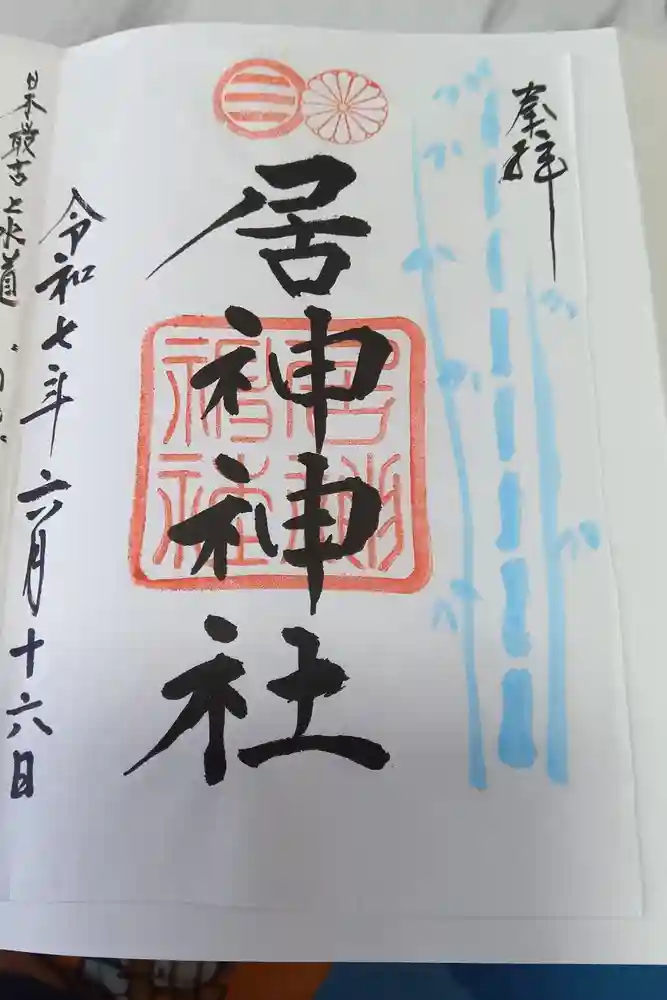 奉拝
居神神社
居神
神社
令和七年六月十六日
日本最古上水道